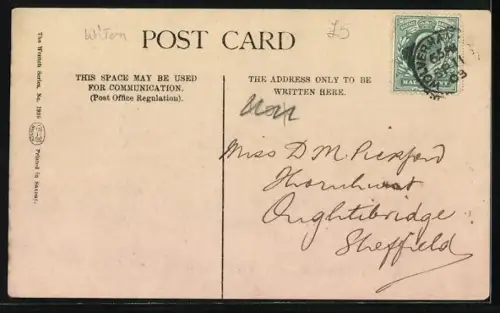 Wilton
£5
POST CARD
THIS SPACE MAY BE USED
FOR COMMUNICATION.
(Post Office Regulation).
THE ADDRESS ONLY TO BE
WRITTEN HERE.
Miss D M Pickford
Thornhurst
Oughtibridge
Sheffield
The Wrench Series, No.
Printed in Saxony.